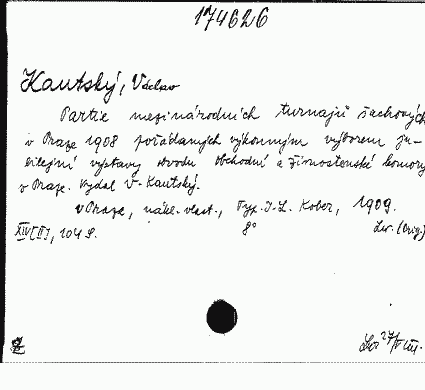 174626
Kautský, Václav
Partie mezinárodních turnajů šachových
v Praze 1908 pořádaných výkonným výborem ju-
bilejní výstavy obvodu obchodní a živnostenské komory
v Praze. Vydal V. Kautský.
v Praze, nákl. vlast., Typ. I. L. Kober, 1909.
XIV[II], 104 S. 8° Lw. (Orig.)